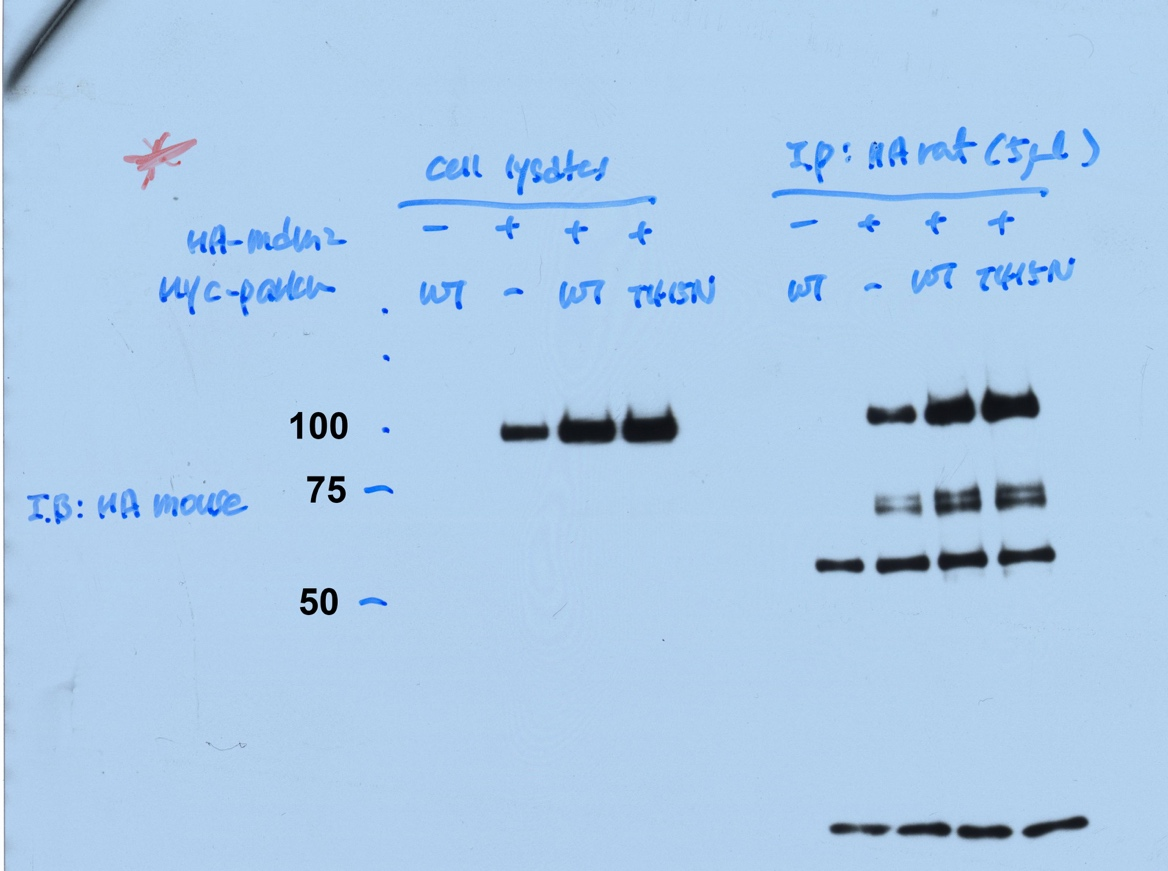 cell lysates
I.p: HA rat (5µl)
HA-mdm2 - + + + - + + +
Myc-parkin WT - WT T415N WT - WT T415N
100
75
I.B: HA mouse
50